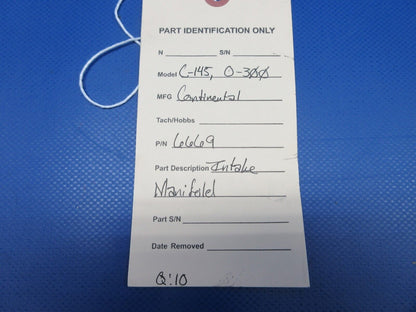 PART IDENTIFICATION ONLY
N S/N
Model C-145, O-300
MFG Continental
Tach/Hobbs
P/N 6669
Part Description Intake
Manifold
Part S/N
Date Removed
Q:10